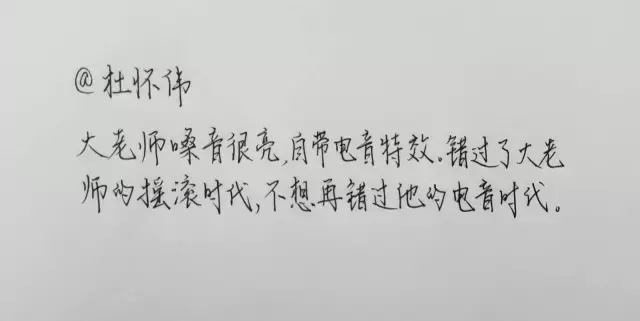 @杜怀伟
大老师嗓音很亮,自带电音特效。错过了大老
师的摇滚时代,不想再错过他的电音时代。